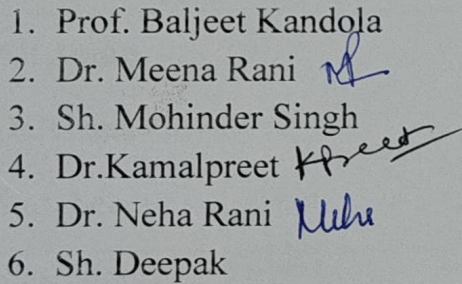 1. Prof. Baljeet Kandola
2. Dr. Meena Rani
3. Sh. Mohinder Singh
4. Dr.Kamalpreet Kpreet
5. Dr. Neha Rani Neha
6. Sh. Deepak